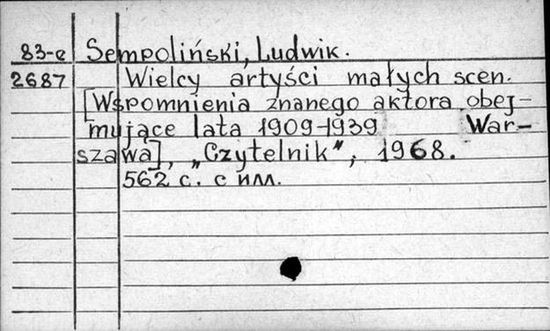 83-е Sempoliński, Ludwik.
2687 Wielcy artyści małych scen.
[Wspomnienia znanego aktora obej-
mujące lata 1909-1939 War-
szawa], „Czytelnik", 1968.
562 с. с илл.